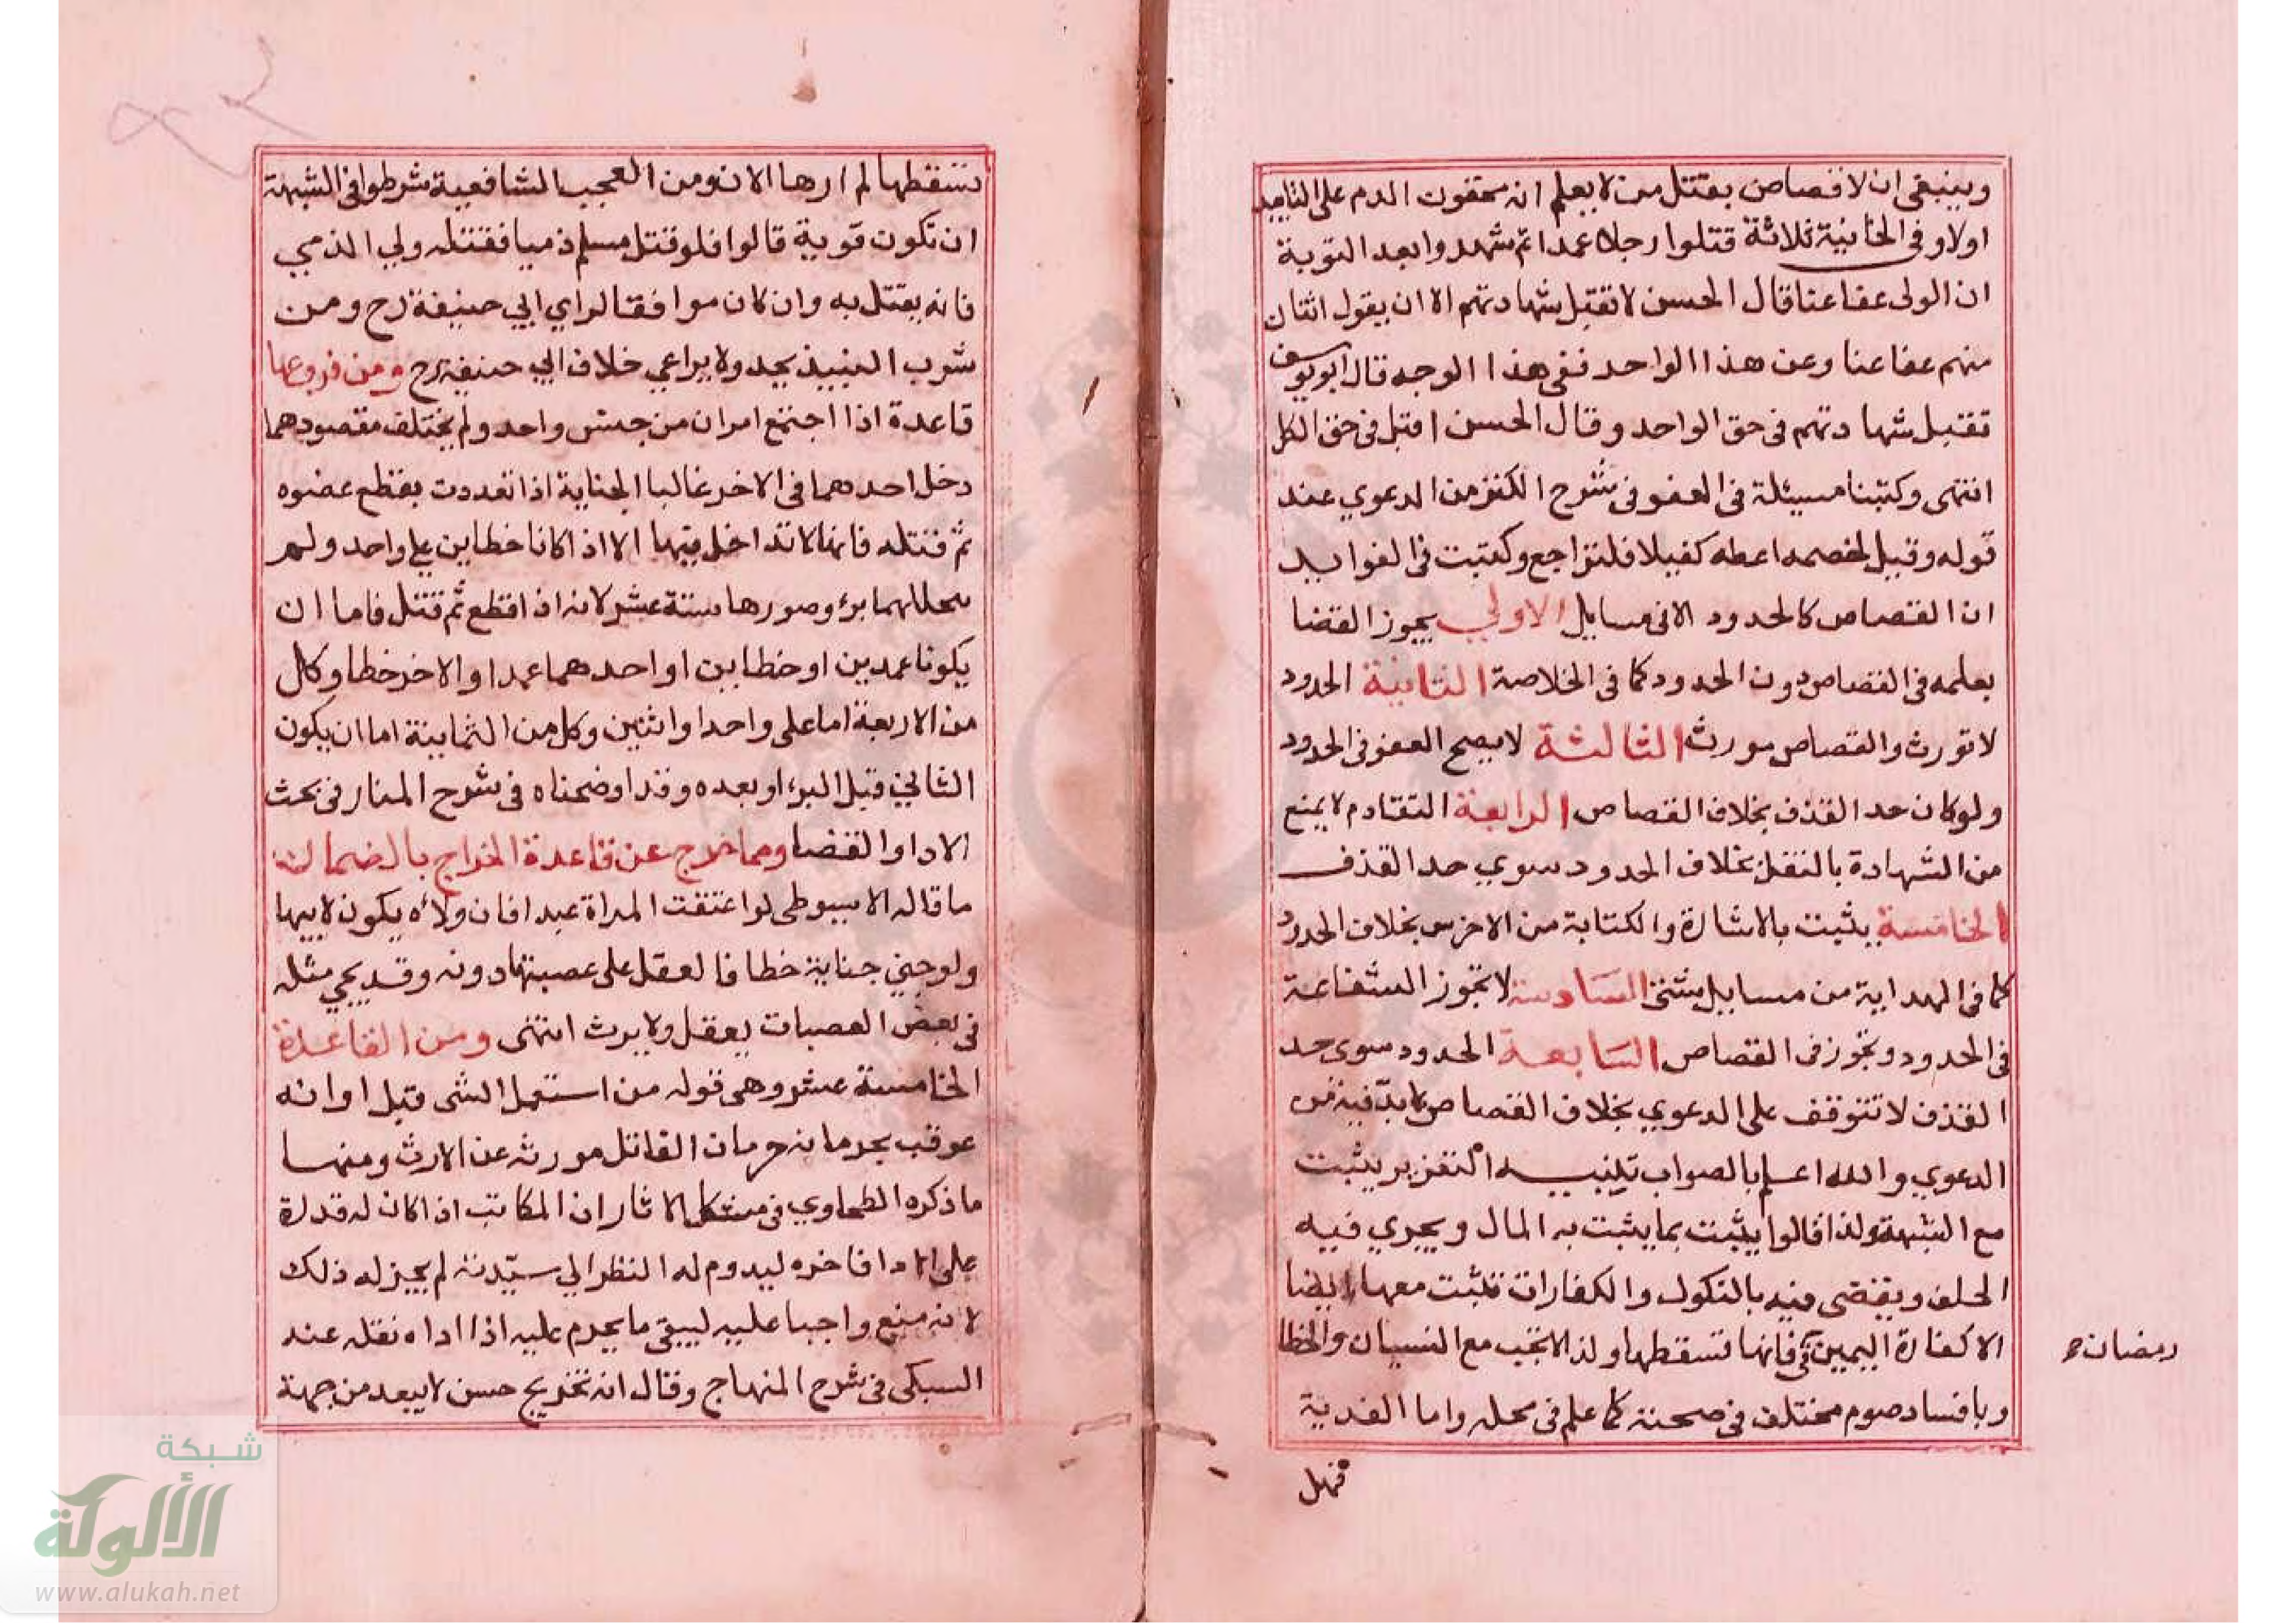 وينبغي ان لا قصاص بقتل من لا يعلم انه محقون الدم على التابيد
اولا وفى الخانية ثلاثة قتلوا رجلا عمدا ثم شهدوا بعد التوبة
ان الولى عفا عنا قال الحسن لا تقبل شهادتهم الا ان يقول اثنان
منهم عفا عنا وعن هذا الواحد ففى هذا الوجه قال ابو يوسف
تقبل شهادتهم فى حق الواحد وقال الحسن اقبل فى حق الكل
انتهى وكتبنا مسيئلة فى العفو فى شرح الكنز من الدعوي عند
قوله وقيل لخصمه اعطه كفيلا فلتراجع وكتبت فى الفوايد
ان القصاص كالحدود الا فى مسايل الاولي يجوز القضا
بعلمه فى القصاص دون الحدود كما فى الخلاصة الثانية الحدود
لا تورث والقصاص مورث الثالثة لا يصح العفو فى الحدود
ولو كان حد القذف بخلاف القصاص الرابعة التقادم لا يمنع
من الشهادة بالقتل بخلاف الحدود سوي حد القذف
الخامسة يثبت بالاشارة والكتابة من الاخرس بخلاف الحدود
كما فى الهداية من مسايل شتى السادسة لا تجوز الشفاعة
فى الحدود وتجوز فى القصاص السابعة الحدود سوى حد
القذف لا تتوقف على الدعوي بخلاف القصاص لا بد فيه من
الدعوي والله اعلم بالصواب تنبيه التعزير يثبت
مع الشبهة ولذا قالوا يثبت بما يثبت به المال ويجري فيه
الحلف ويقضى فيه بالنكول والكفارات تثبت معها ايضا
الا كفارة اليمين فى فانها تسقطها ولذا لا تجب مع النسيان والخطا
رمضان
وبافساد صوم مختلف فى صحته كما علم فى محله واما الفدية
فهل
تسقطها لم ارها الان ومن العجب الشافعية شرطوا فى الشبهة
ان تكون قوية قالوا فلو قتل مسلم ذميا فقتله ولي الذمي
فانه يقتل به وان كان موافقا لراي ابي حنيفة رح ومن
شرب النبيذ يحد ولا يراعي خلاف ابي حنيفة رح ومن فروعها
قاعدة اذا اجتمع امران من جنس واحد ولم يختلف مقصودهما
دخل احدهما فى الاخر غالبا الجناية اذا تعددت بقطع عضوه
ثم قتله فانها لا تداخل فيها الا اذا كانا خطاين على واحد ولم
يتخللهما برء وصورها ستة عشر لانه اذا قطع ثم قتل فاما ان
يكونا عمدين او خطايين او احدهما عمدا والاخر خطا وكل
من الاربعة اما على واحد او اثنين وكل من الثمانية اما ان يكون
الثاني قبل البرء او بعده وقد اوضحناه فى شرح المنار فى بحث
الادا والقضا ومما خرج عن قاعدة الخراج بالضمان
ما قاله الاسيوطى لو اعتقت المراة عبدا فان ولاءه يكون لابيها
ولو جني جناية خطا فالعقل على عصبتها دونه وقد يجي مثله
فى بعض العصبات يعقل ولا يرث انتهى ومن القاعدة
الخامسة عشر وهى قوله من استعمل الشى قبل اوانه
عوقب بحرمانه حرمان القاتل مورثه عن الارث ومنها
ما ذكره الطحاوي فى مشكل الاثار ان المكاتب اذا كان له قدرة
على الادا فاخره ليدوم له النظر الي سيدته لم يجز له ذلك
لانه منع واجبا عليه ليبقى ما يحرم عليه اذا اداه نقله عند
السبكى فى شرح المنهاج وقال انه تخريج حسن لا يبعد من جهة
شبكة
الألوكة
www.alukah.net